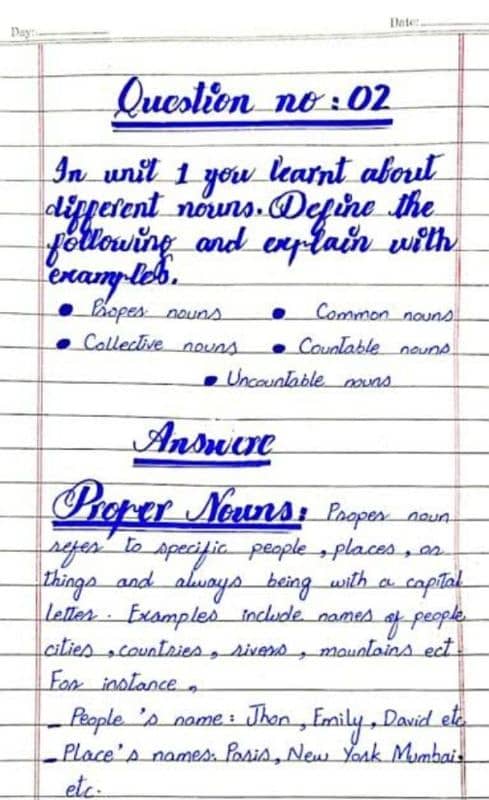 Day:
Date:
Question no : 02
In unit 1 you learnt about
different nouns. Define the
following and explain with
examples.
• Proper nouns • Common nouns
• Collective nouns • Countable nouns
• Uncountable nouns
Answere
Proper Nouns: Proper noun
refer to specific people, places, or
things and always being with a capital
letter. Examples include names of people
cities, countries, rivers, mountains ect.
For instance,
_ People 's name: Jhon, Emily, David etc
_ Place's names: Paris, New York Mumbai.
etc.